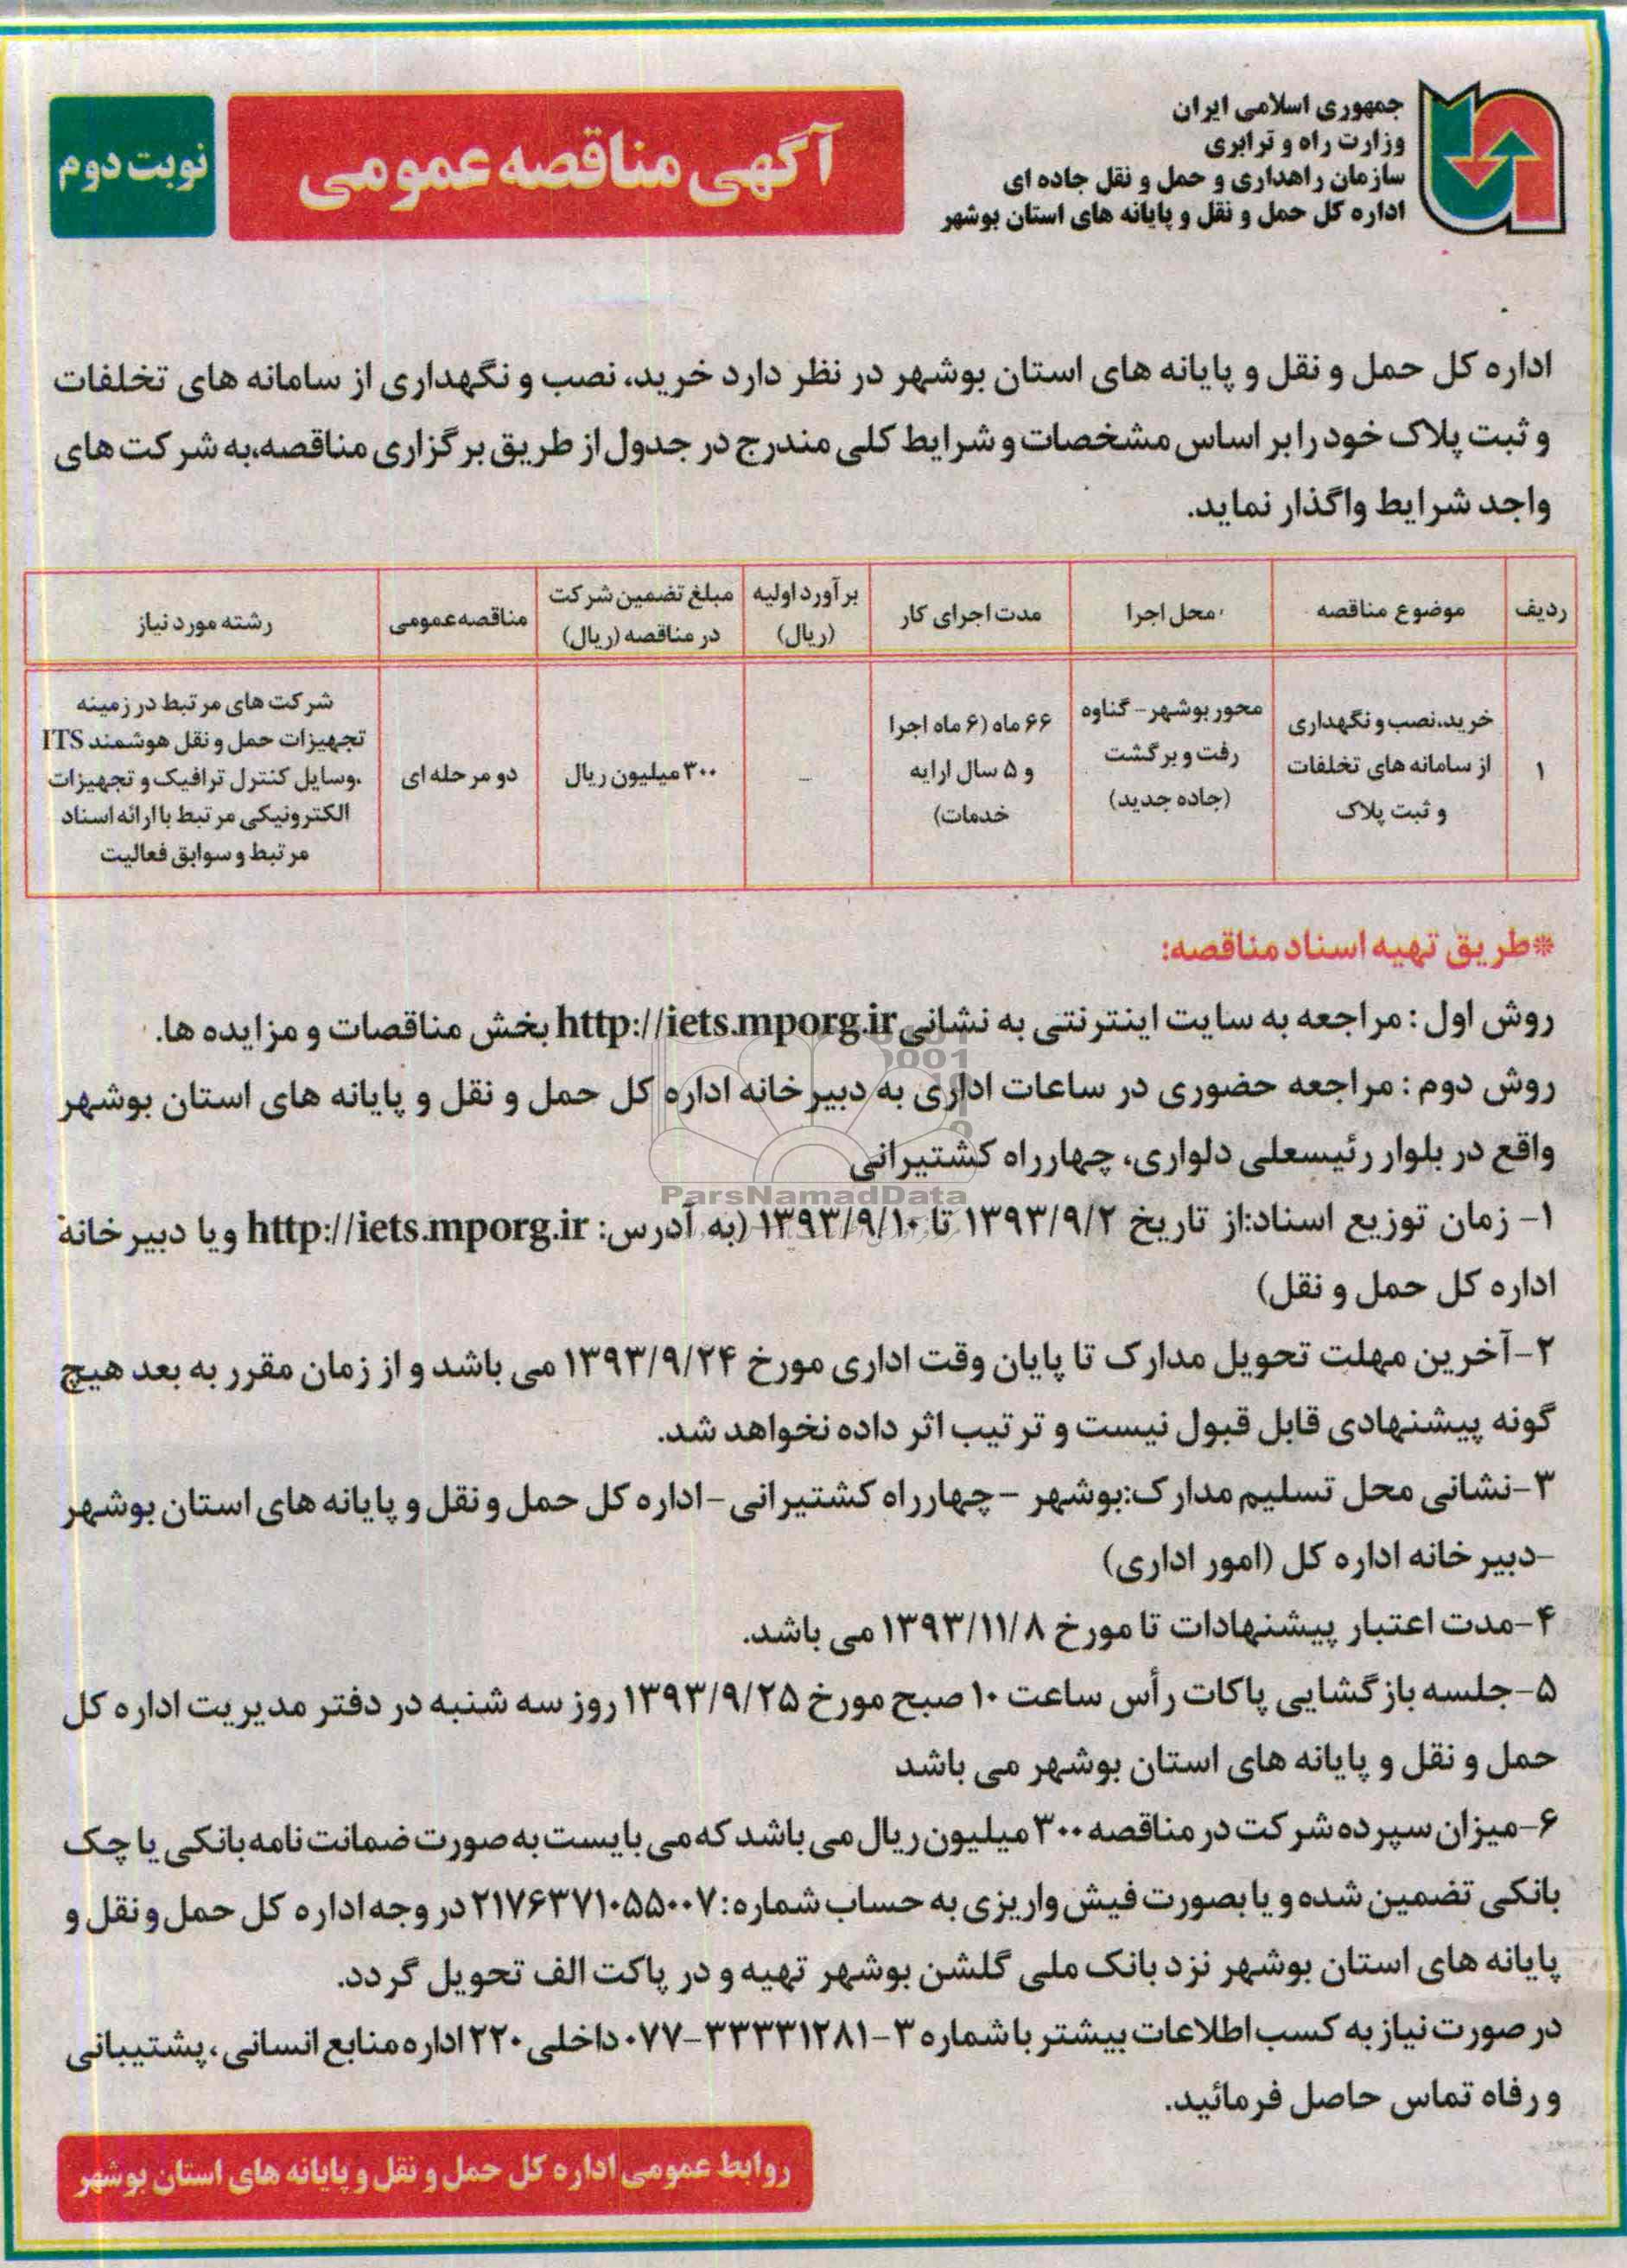 جمهوری اسلامی ایران
وزارت راه و ترابری
سازمان راهداری و حمل و نقل جاده ای
اداره کل حمل و نقل و پایانه های استان بوشهر
آگهی مناقصه عمومی
نوبت دوم
اداره کل حمل و نقل و پایانه های استان بوشهر در نظر دارد خرید، نصب و نگهداری از سامانه های تخلفات
و ثبت پلاک خود را بر اساس مشخصات و شرایط کلی مندرج در جدول از طریق برگزاری مناقصه،به شرکت های
واجد شرایط واگذار نماید.
ردیف
موضوع مناقصه
محل اجرا
مدت اجرای کار
برآورد اولیه
(ریال)
مبلغ تضمین شرکت
در مناقصه (ریال)
مناقصه عمومی
رشته مورد نیاز
۱
خرید،نصب و نگهداری
از سامانه های تخلفات
و ثبت پلاک
محور بوشهر- گناوه
رفت و برگشت
(جاده جدید)
۶۶ ماه (۶ ماه اجرا
و ۵ سال ارایه
خدمات)
_
۳۰۰ میلیون ریال
دو مرحله ای
شرکت های مرتبط در زمینه
تجهیزات حمل و نقل هوشمند ITS
،وسایل کنترل ترافیک و تجهیزات
الکترونیکی مرتبط با ارائه اسناد
مرتبط و سوابق فعالیت
*طریق تهیه اسناد مناقصه:
روش اول : مراجعه به سایت اینترنتی به نشانی http://iets.mporg.ir بخش مناقصات و مزایده ها.
روش دوم : مراجعه حضوری در ساعات اداری به دبیرخانه اداره کل حمل و نقل و پایانه های استان بوشهر
واقع در بلوار رئیسعلی دلواری، چهارراه کشتیرانی
ParsNamadData
۱- زمان توزیع اسناد:از تاریخ ۱۳۹۳/۹/۲ تا ۱۳۹۳/۹/۱۰ (به آدرس: http://iets.mporg.ir ویا دبیرخانه
اداره کل حمل و نقل)
۲-آخرین مهلت تحویل مدارک تا پایان وقت اداری مورخ ۱۳۹۳/۹/۲۴ می باشد و از زمان مقرر به بعد هیچ
گونه پیشنهادی قابل قبول نیست و ترتیب اثر داده نخواهد شد.
۳-نشانی محل تسلیم مدارک:بوشهر -چهارراه کشتیرانی -اداره کل حمل و نقل و پایانه های استان بوشهر
-دبیرخانه اداره کل (امور اداری)
۴-مدت اعتبار پیشنهادات تا مورخ ۱۳۹۳/۱۱/۸ می باشد.
۵-جلسه بازگشایی پاکات رأس ساعت ۱۰ صبح مورخ ۱۳۹۳/۹/۲۵ روز سه شنبه در دفتر مدیریت اداره کل
حمل و نقل و پایانه های استان بوشهر می باشد
۶-میزان سپرده شرکت در مناقصه ۳۰۰ میلیون ریال می باشد که می بایست به صورت ضمانت نامه بانکی یا چک
بانکی تضمین شده و یا بصورت فیش واریزی به حساب شماره: ۲۱۷۶۳۷۱۰۵۵۰۰۷ در وجه اداره کل حمل و نقل و
پایانه های استان بوشهر نزد بانک ملی گلشن بوشهر تهیه و در پاکت الف تحویل گردد.
در صورت نیاز به کسب اطلاعات بیشتر با شماره ۳-۳۳۳۳۱۲۸۱-۰۷۷ داخلی ۲۲۰ اداره منابع انسانی ، پشتیبانی
و رفاه تماس حاصل فرمائید.
روابط عمومی اداره کل حمل و نقل و پایانه های استان بوشهر